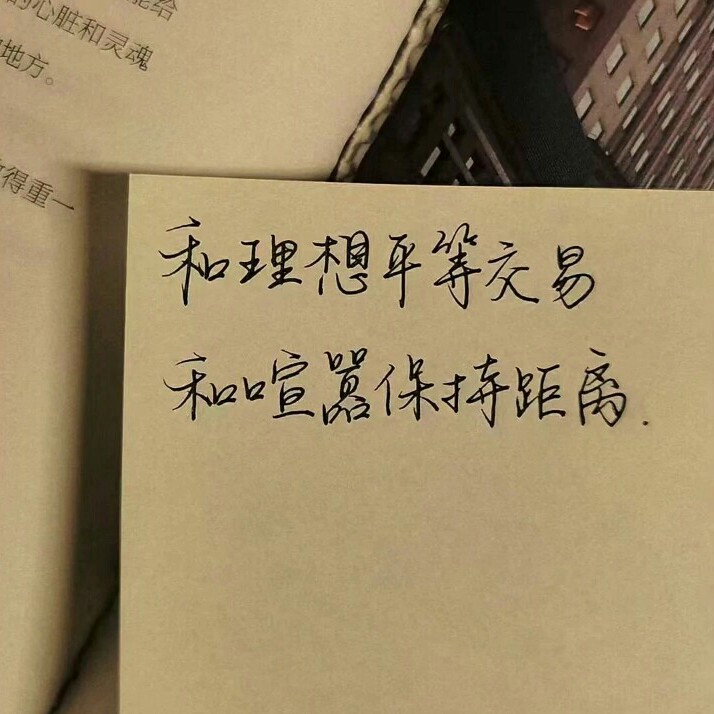 的心脏和灵魂
地方。
得重一
和理想平等交易
和喧嚣保持距离.